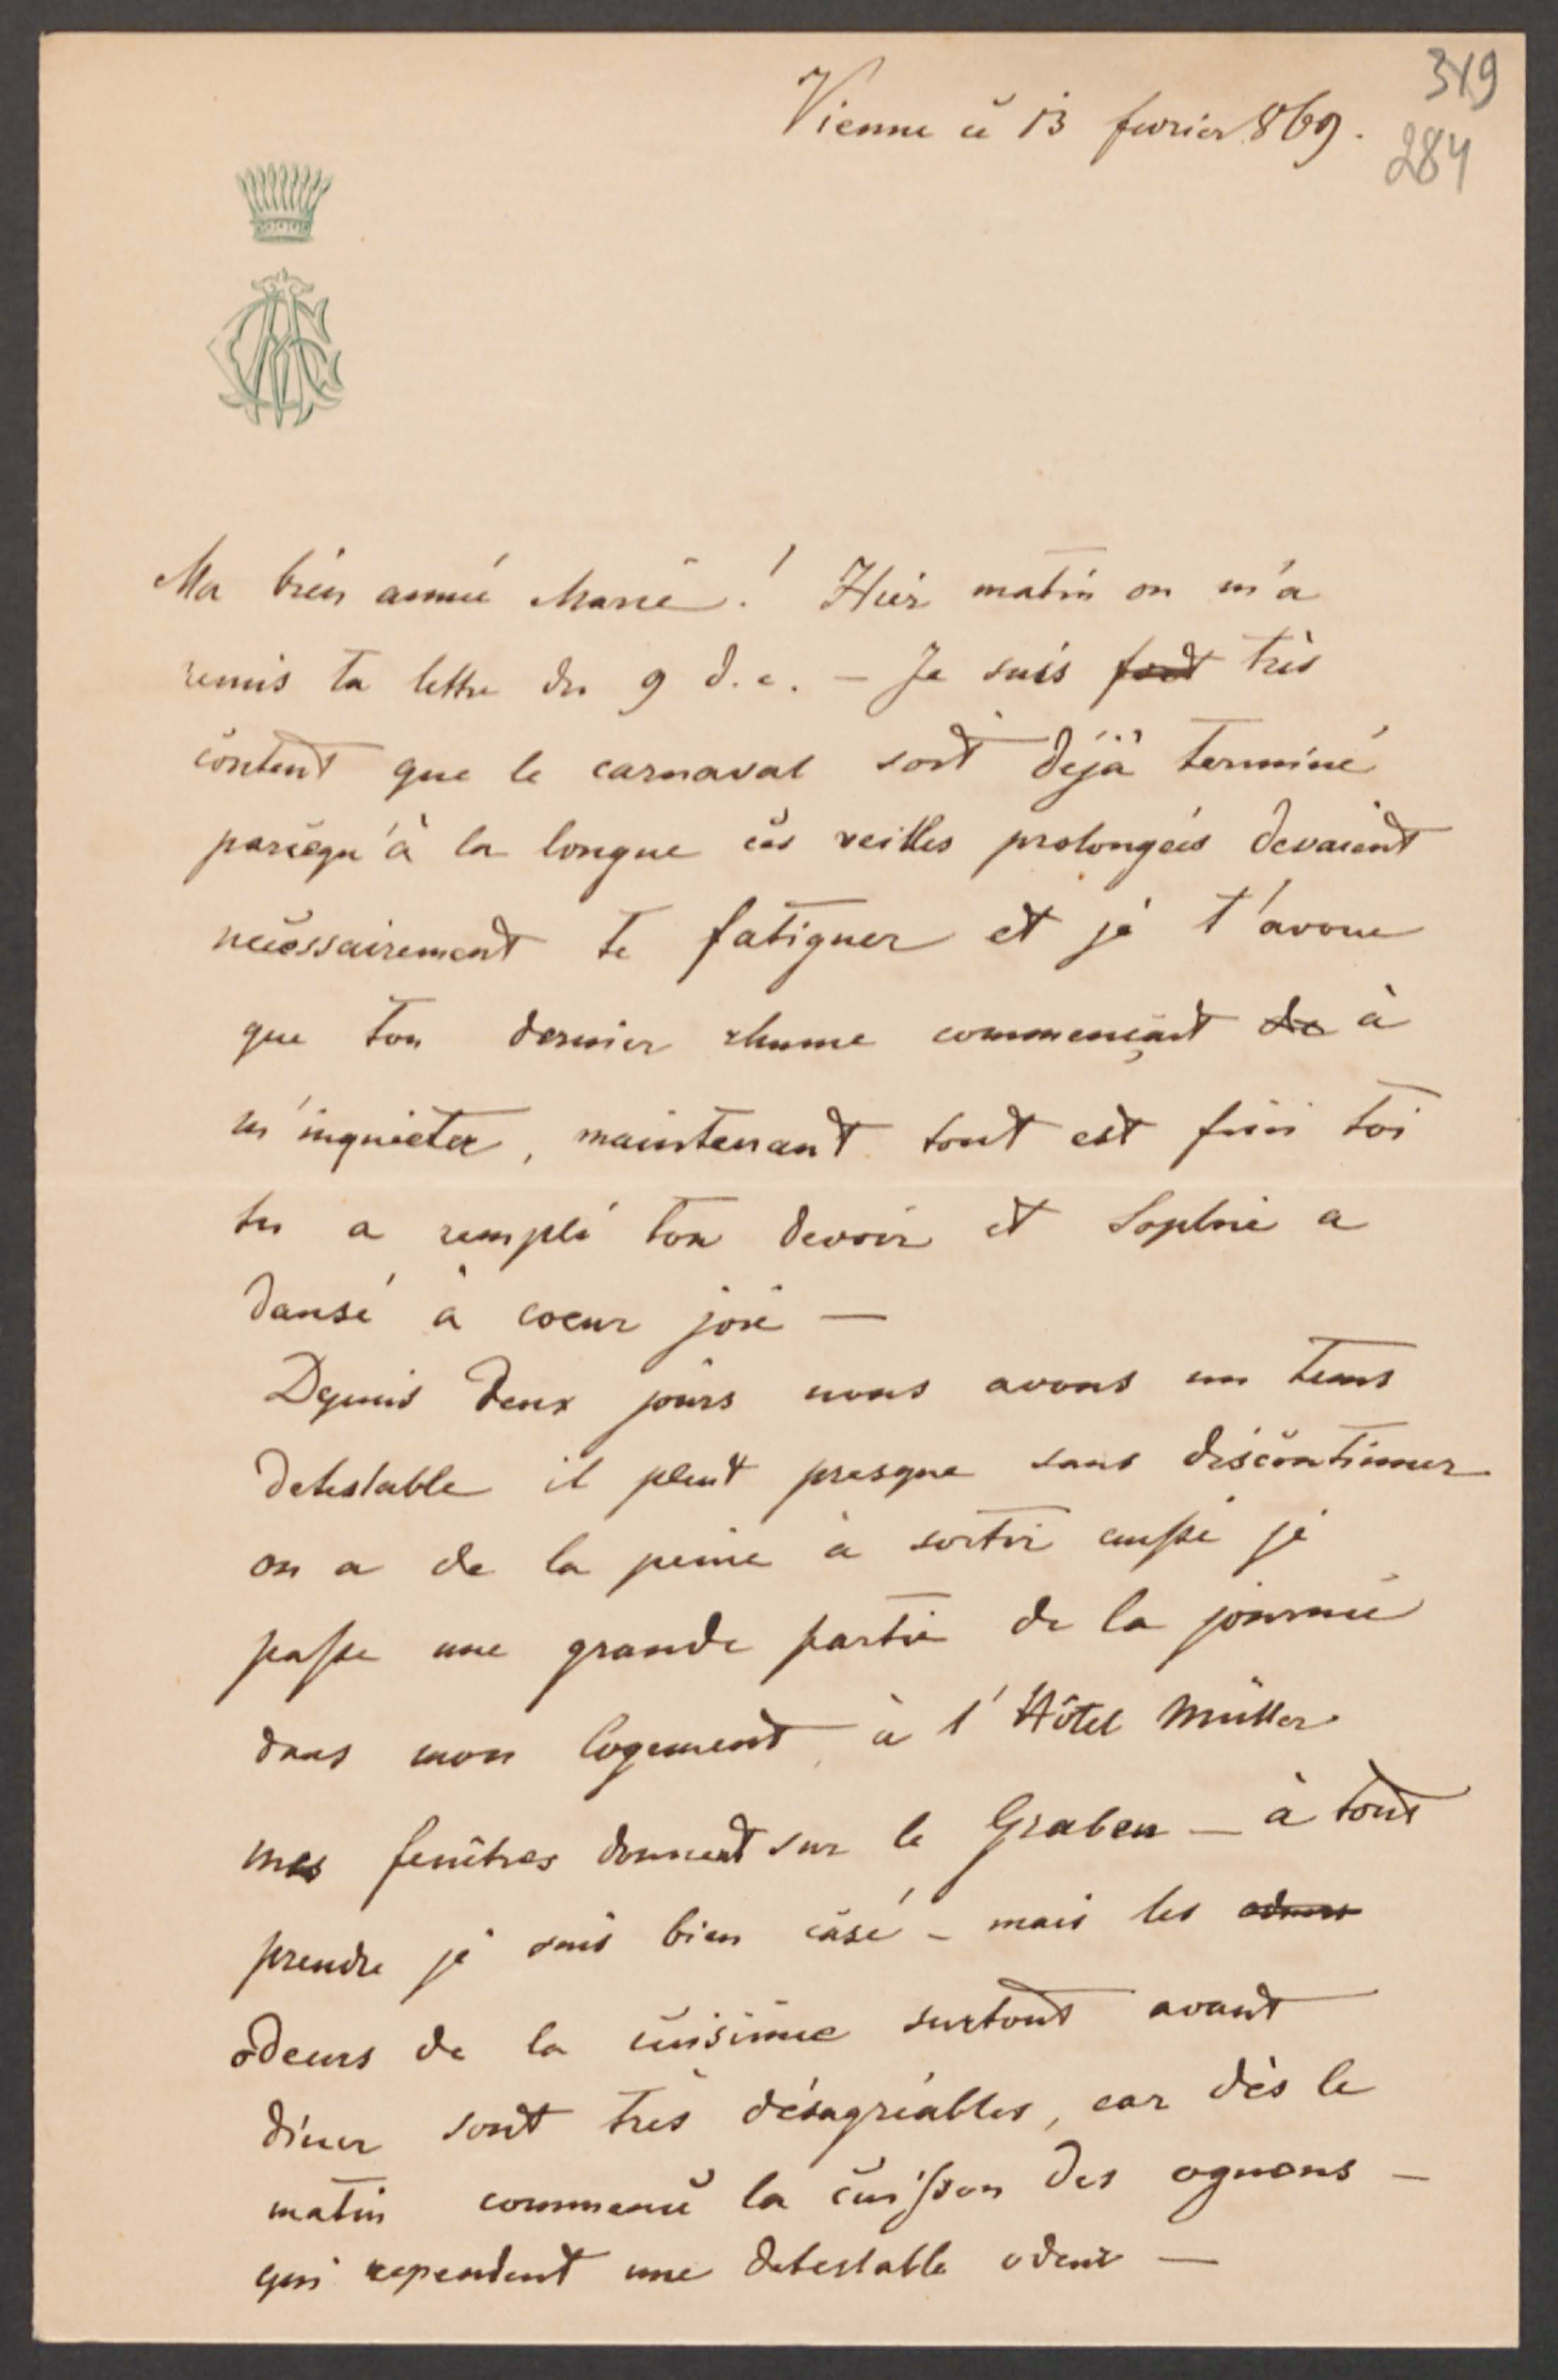 319
Vienne cé 13 fevrier 869.
284
Ma bien aimée Marie! Hier matin on m'a
remis ta lettre du 9 d.c. – Je suis fort très
content que le carnaval soit déjà terminé
parcequ'à la longue ces veilles prolongées devaient
nécessairement te fatiguer et je t'avoue
que ton dernier rhume commençait de à
m'inquieter, maintenant tout est fini toi
tu a rempli ton devoir et Sophie a
dansé à coeur joie —
Depuis deux jours nous avons un tems
detestable il pleut presque sans discontinuer
on a de la peine à sortir aussi je
passe une grande partie de la journée
dans mon logement à l'Hôtel Müller
mes fenêtres donnent sur le Graben – à tout
prendre je suis bien casé – mais les
odeurs de la cuisine surtout avant
diner sont très désagréables, car dès le
matin commence la cuisson des ognons –
qui rependent une detestable odeur —